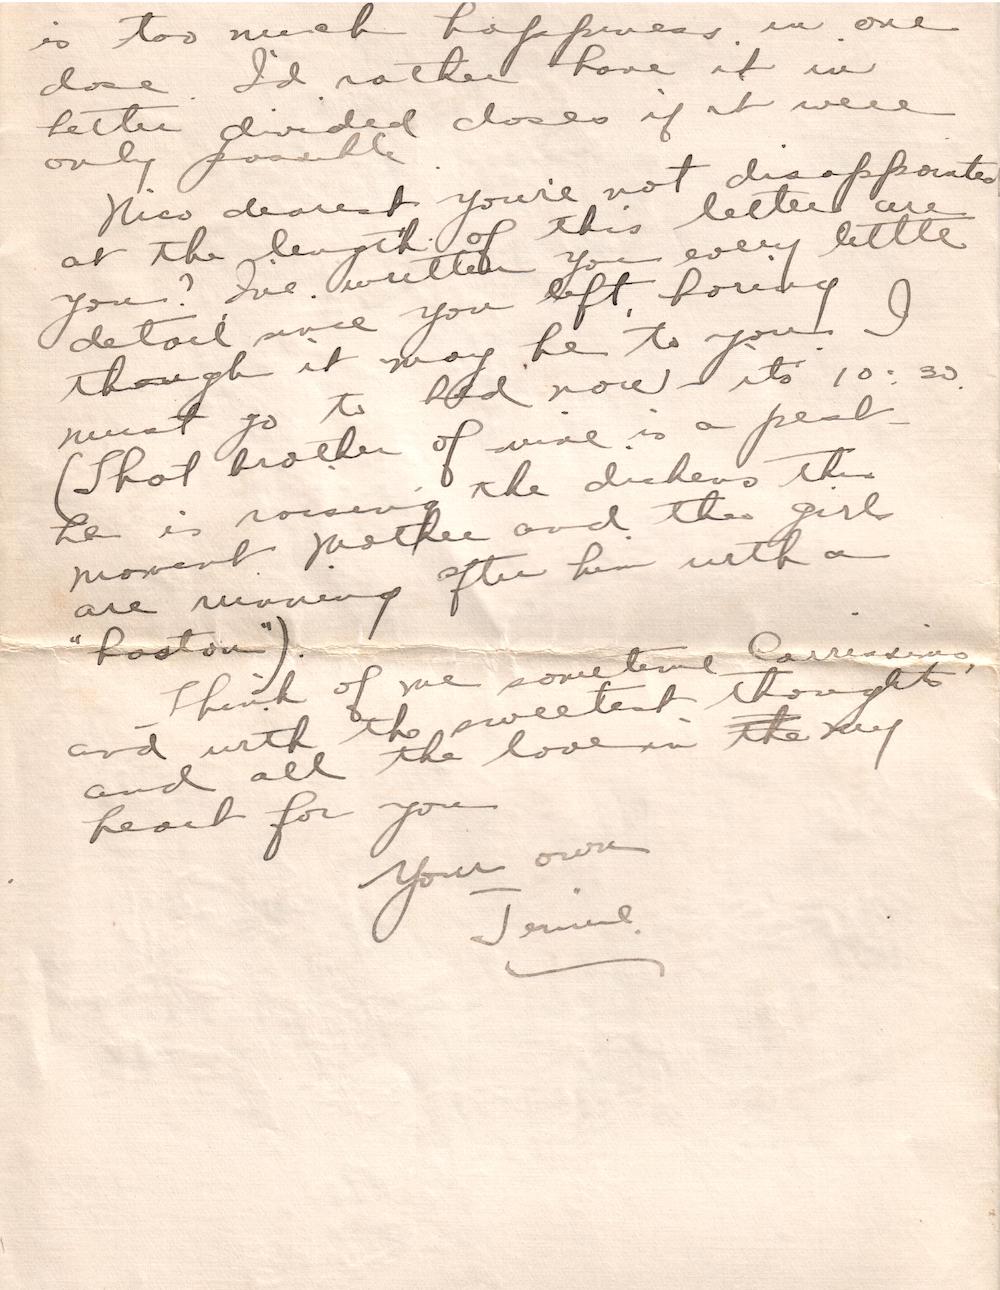 is too much happiness in one
dose. I'd rather have it in
better divided doses if it were
only possible.
Nico dearest you're not disappointed
at the length of this letter are
you? I've written you every little
detail since you left, boring
though it may be to you. I
must go to bed now - its 10:30.
(That brother of mine is a pest -
he is raising the dickens this
moment Mother and the girls
are running after him with a
"baston").
Think of me sometime Carissimo,
and with the sweetest thoughts
and all the love in the my
heart for you
Your own
Jennie.